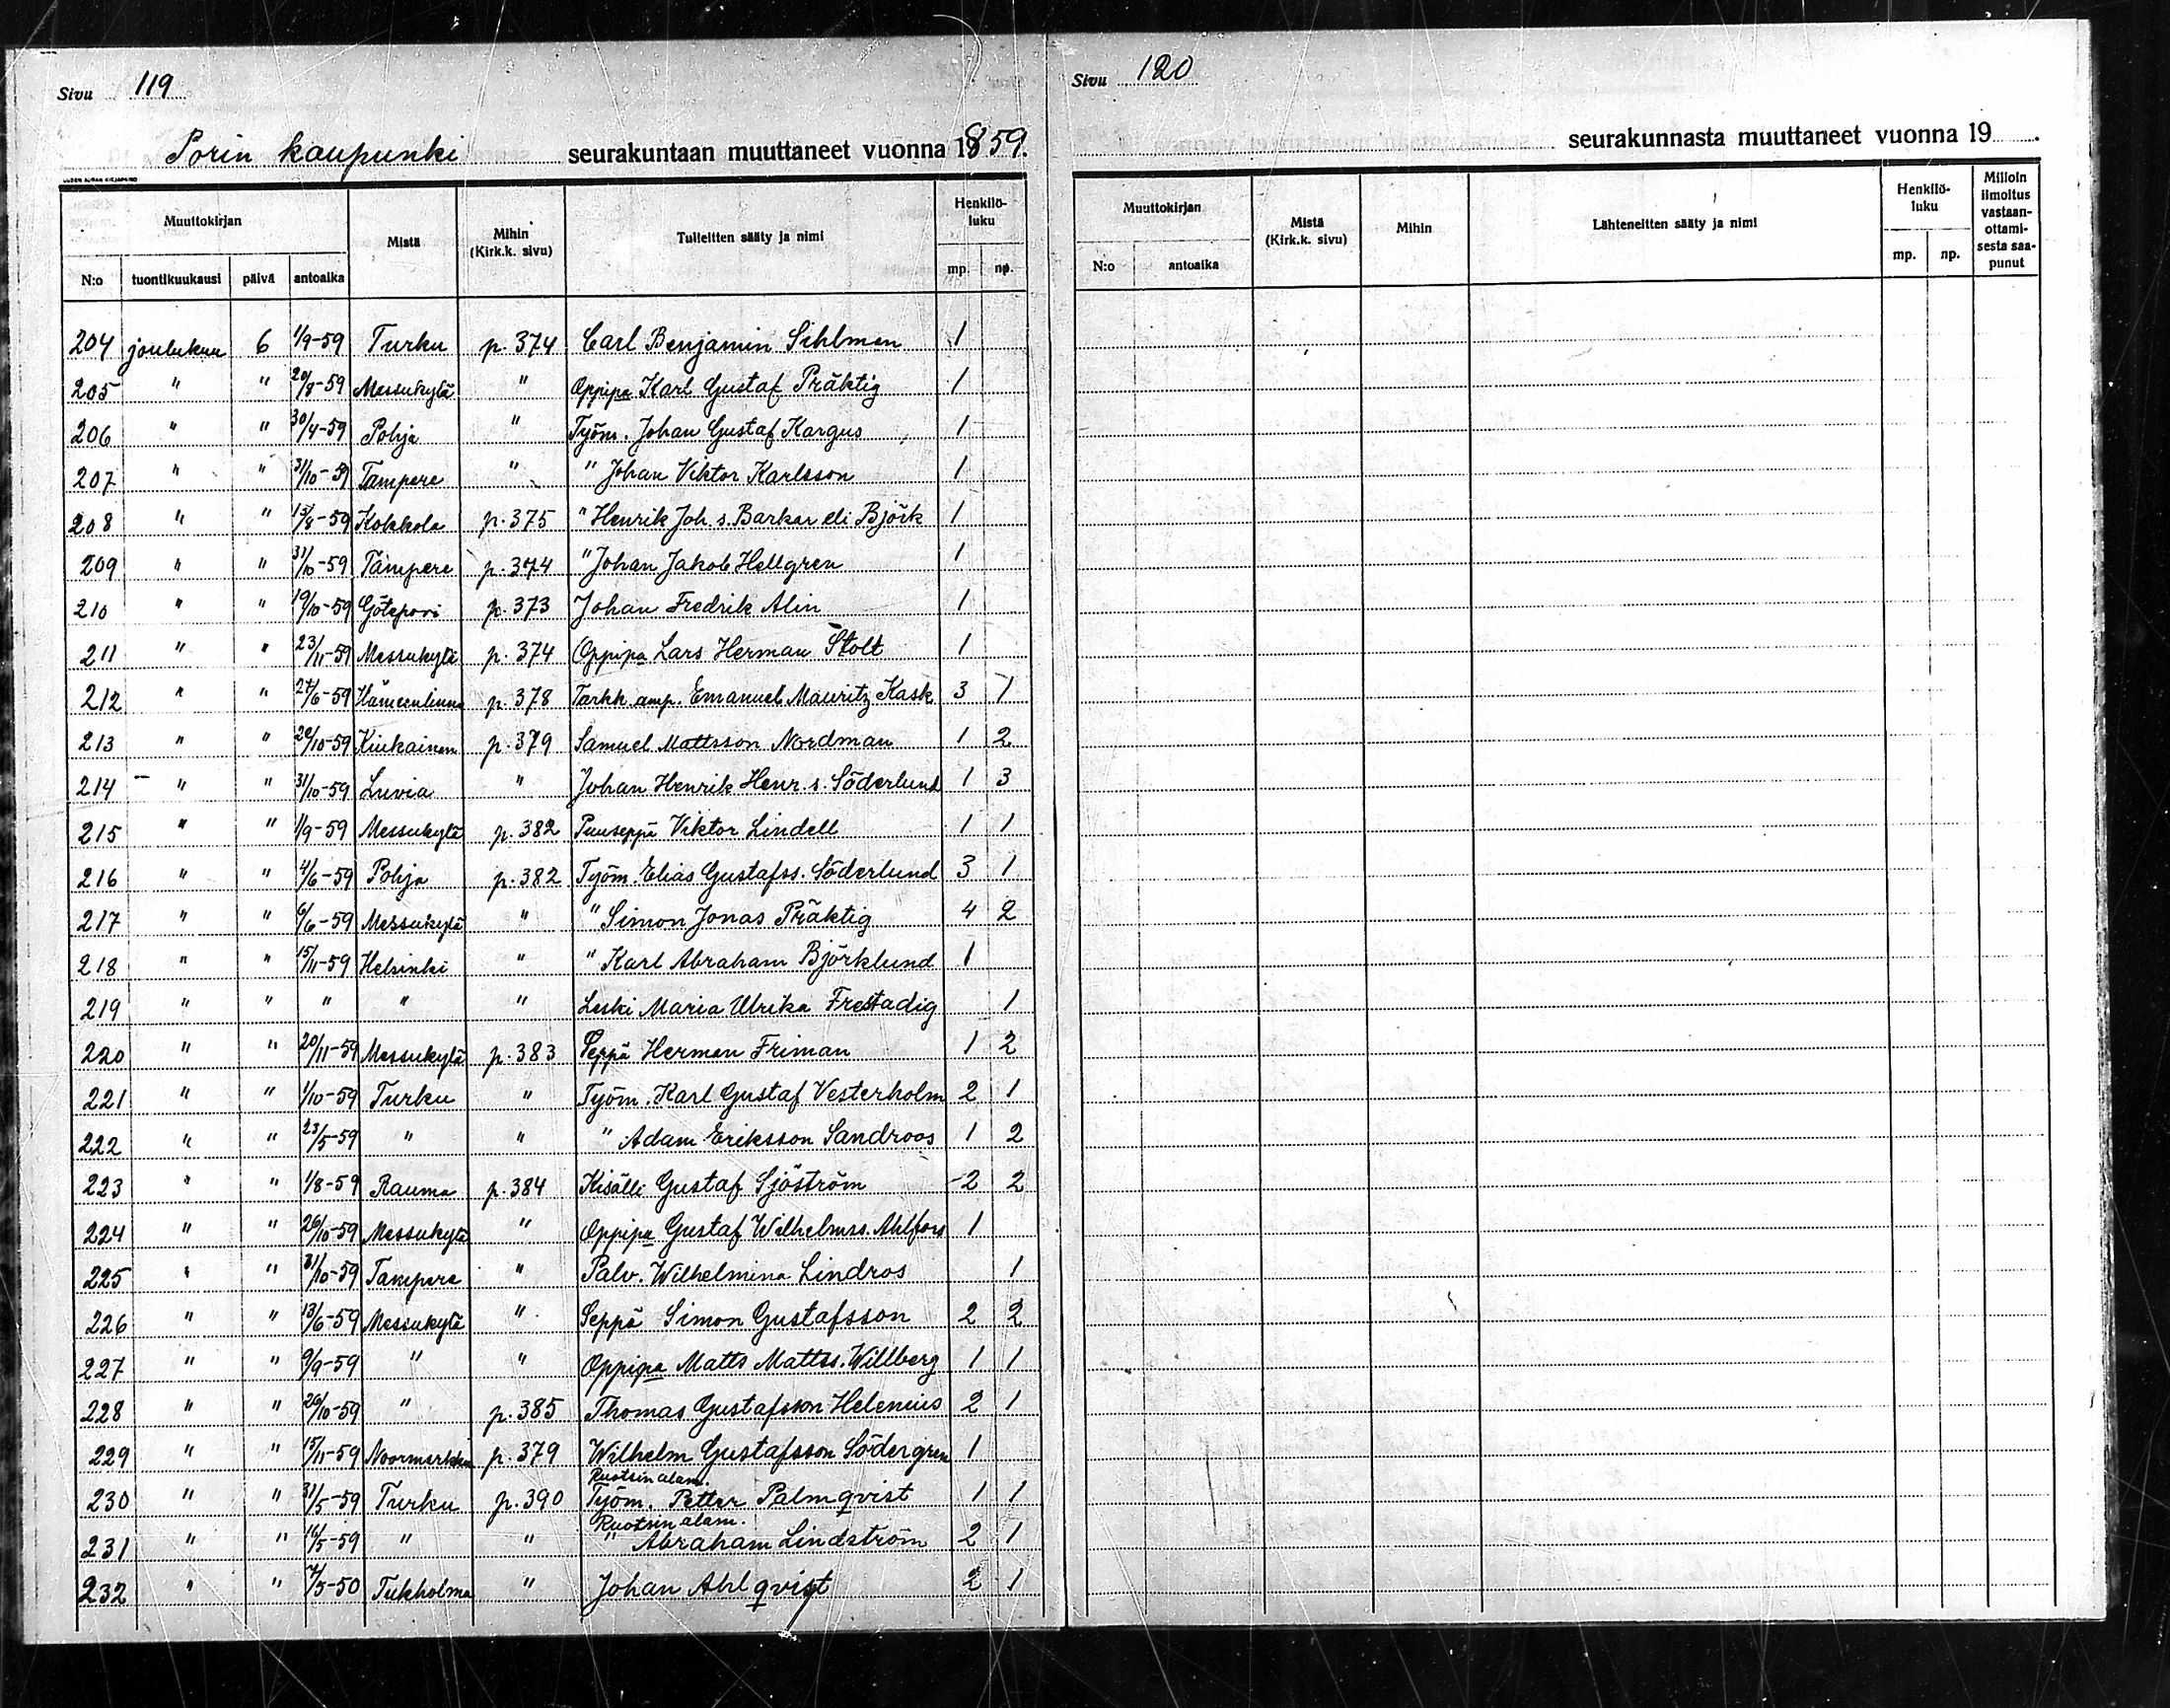 Sivu 119
Porin kaupunki seurakuntaan muuttaneet vuonna 1859.
Muuttokirjan Mistä Mihin (Kirk.k. sivu) Tulleitten sääty ja nimi Henkilö-luku
N:o tuontikuukausi päivä antoaika mp. np.
204 joulukuu 6 1/9-59 Turku p. 374 Carl Benjamin Sihlman 1
205 " " 20/8-59 Messukylä " Oppipa Karl Gustaf Präktig 1
206 " " 30/4-59 Pohja " Työm. Johan Gustaf Kargus 1
207 " " 31/10-59 Tampere " " Johan Viktor Karlsson 1
208 " " 15/8-59 Kokkola p. 375 " Henrik Joh. s. Barkar eli Björk 1
209 " " 31/10-59 Tampere p. 374 " Johan Jakob Hellgren 1
210 " " 19/10-59 Götepori p. 373 Johan Fredrik Alin 1
211 " " 23/11-59 Messukylä p. 374 Oppipa Lars Herman Stolt 1
212 " " 27/6-59 Hämeenlinna p. 378 Tarkk. amp. Emanuel Mauritz Kask 3 1
213 " " 20/10-59 Kiukainen p. 379 Samuel Mattsson Nordman 1 2
214 " " 31/10-59 Luvia " Johan Henrik Henr. s. Söderlund 1 3
215 " " 1/9-59 Messukylä p. 382 Puuseppä Viktor Lindell 1 1
216 " " 4/6-59 Pohja p. 382 Työm. Elias Gustafss. Söderlund 3 1
217 " " 6/6-59 Messukylä " " Simon Jonas Präktig 4 2
218 " " 15/11-59 Helsinki " " Karl Abraham Björklund 1
219 " " " " " Leski Maria Ulrika Frestadig 1
220 " " 20/11-59 Messukylä p. 383 Seppä Herman Friman 1 2
221 " " 1/10-59 Turku " Työm. Karl Gustaf Vesterholm 2 1
222 " " 23/5-59 " " " Adam Eriksson Sandroos 1 2
223 " " 1/8-59 Rauma p. 384 Kisälli Gustaf Sjöström 2 2
224 " " 26/10-59 Messukylä " Oppipa Gustaf Wilhelmss. Ahlfors 1
225 " " 31/10-59 Tampere " Palv. Wilhelmina Lindros 1
226 " " 13/6-59 Messukylä " Seppä Simon Gustafsson 2 2
227 " " 9/9-59 " " Oppipa Matts Mattss. Willberg 1 1
228 " " 26/10-59 " p. 385 Thomas Gustafsson Helenius 2 1
229 " " 15/11-59 Noormarkku p. 379 Wilhelm Gustafsson Södergren 1
Ruotsin alam.
230 " " 31/5-59 Turku p. 390 Työm. Petter Palmqvist 1 1
Ruotsin alam.
231 " " 16/5-59 " " " Abraham Lindström 2 1
232 " " 7/5-50 Tukholma " Johan Ahlqvist 2 1
Sivu 120
seurakunnasta muuttaneet vuonna 19 .
Muuttokirjan Mistä (Kirk.k. sivu) Mihin Lähteneitten sääty ja nimi Henkilö-luku Milloin ilmoitus vastaan-ottami-sesta saa-punut
N:o antoaika mp. np.